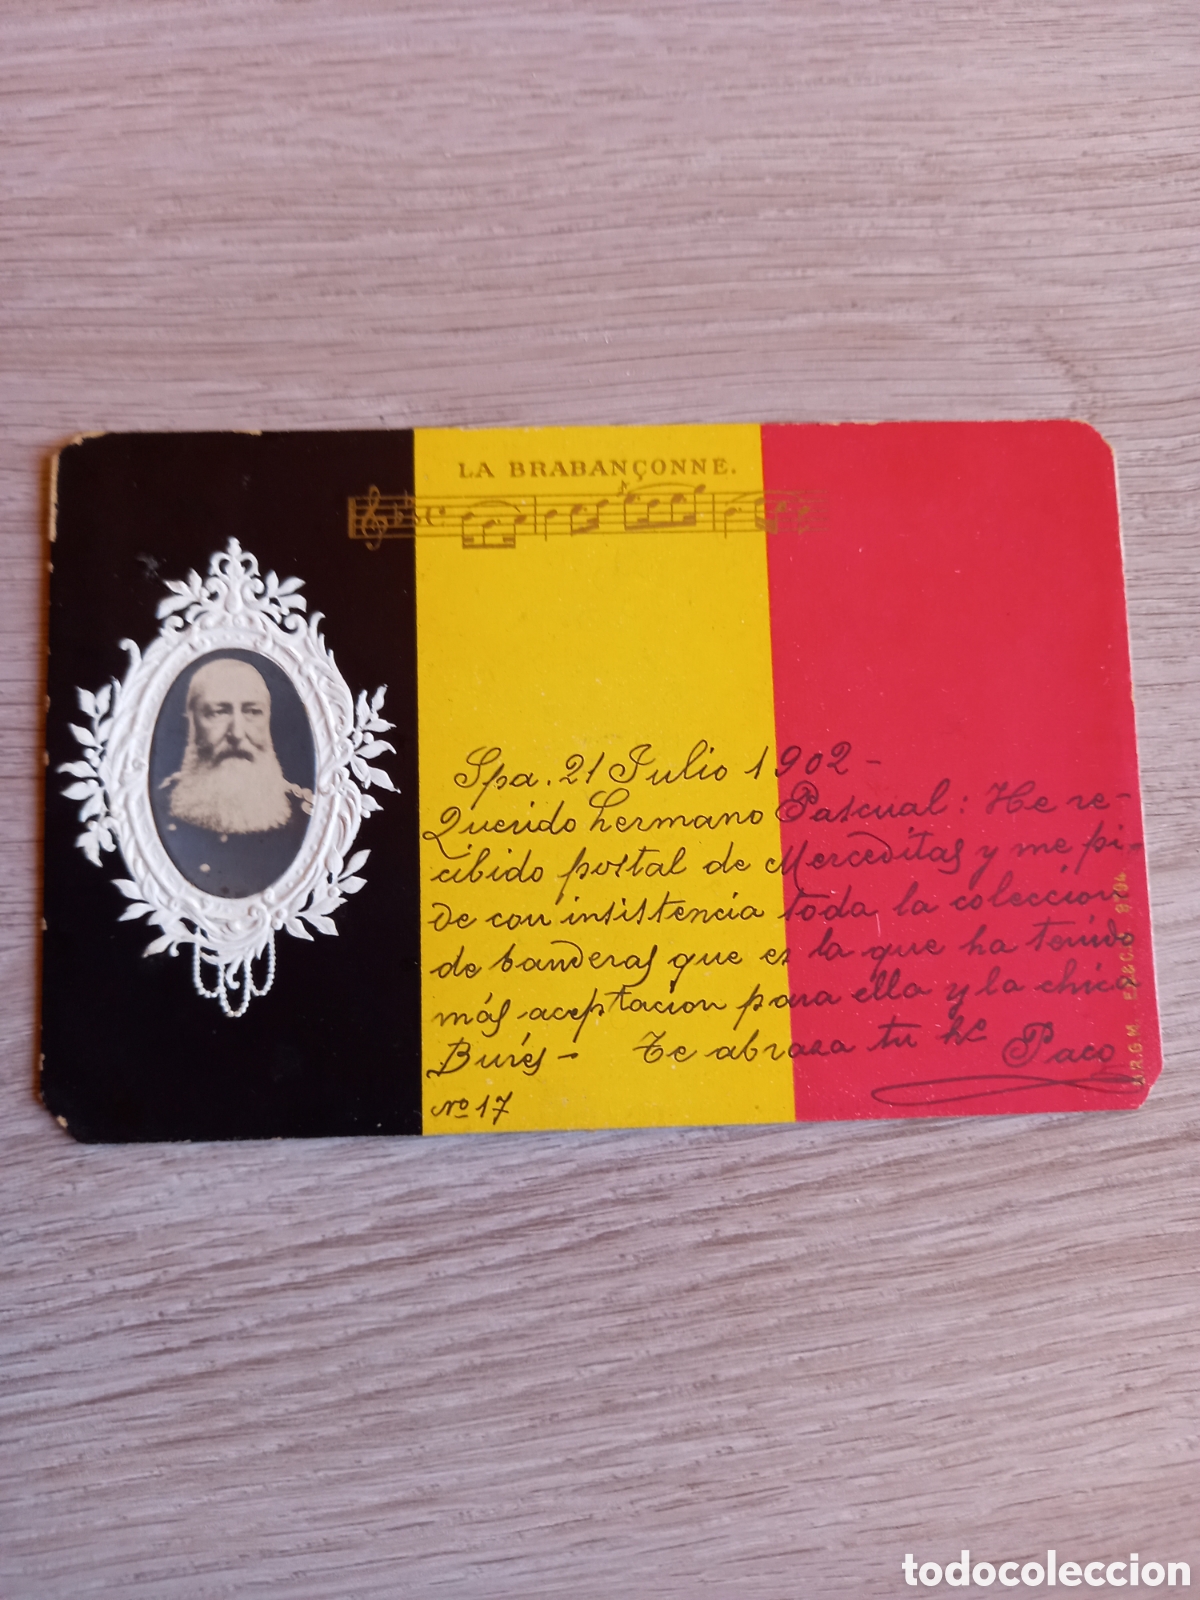 LA BRABANÇONNE.
Spa. 21 Julio 1902 -
Querido hermano Pascual: He re-
cibido postal de Merceditas y me pi-
de con insistencia toda la coleccion
de banderas que es la que ha tenido
más aceptacion para ella y la chica
Burés - Te abraza tu hº Paco
nº 17
D.R.G.M.
todocoleccion